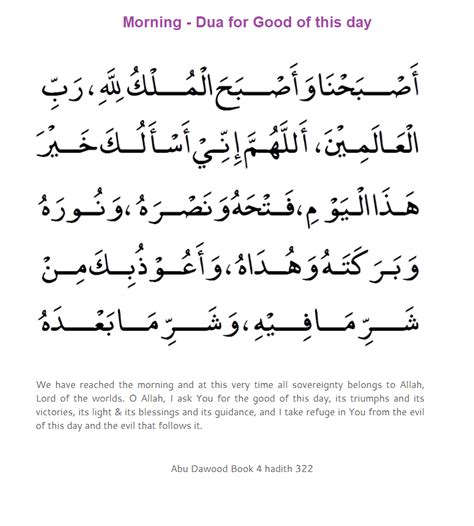 Morning - Dua for Good of this day
أَصْبَحْنَا وَأَصْبَحَ الْمُلْكُ لِلَّهِ، رَبِّ
الْعَالَمِيْنَ، أَللَّهُمَّ إِنِّيْ أَسْأَلُكَ خَيْرَ
هَذَا الْيَوْمِ، فَتْحَهُ وَنَصْرَهُ، وَنُورَهُ
وَبَرَكَتَهُ وَهُدَاهُ، وَأَعُوْذُ بِكَ مِنْ
شَرِّ مَا فِيْهِ، وَشَرِّ مَا بَعْدَهُ
We have reached the morning and at this very time all sovereignty belongs to Allah,
Lord of the worlds. O Allah, I ask You for the good of this day, its triumphs and its
victories, its light & its blessings and its guidance, and I take refuge in You from the evil
of this day and the evil that follows it.
Abu Dawood Book 4 hadith 322